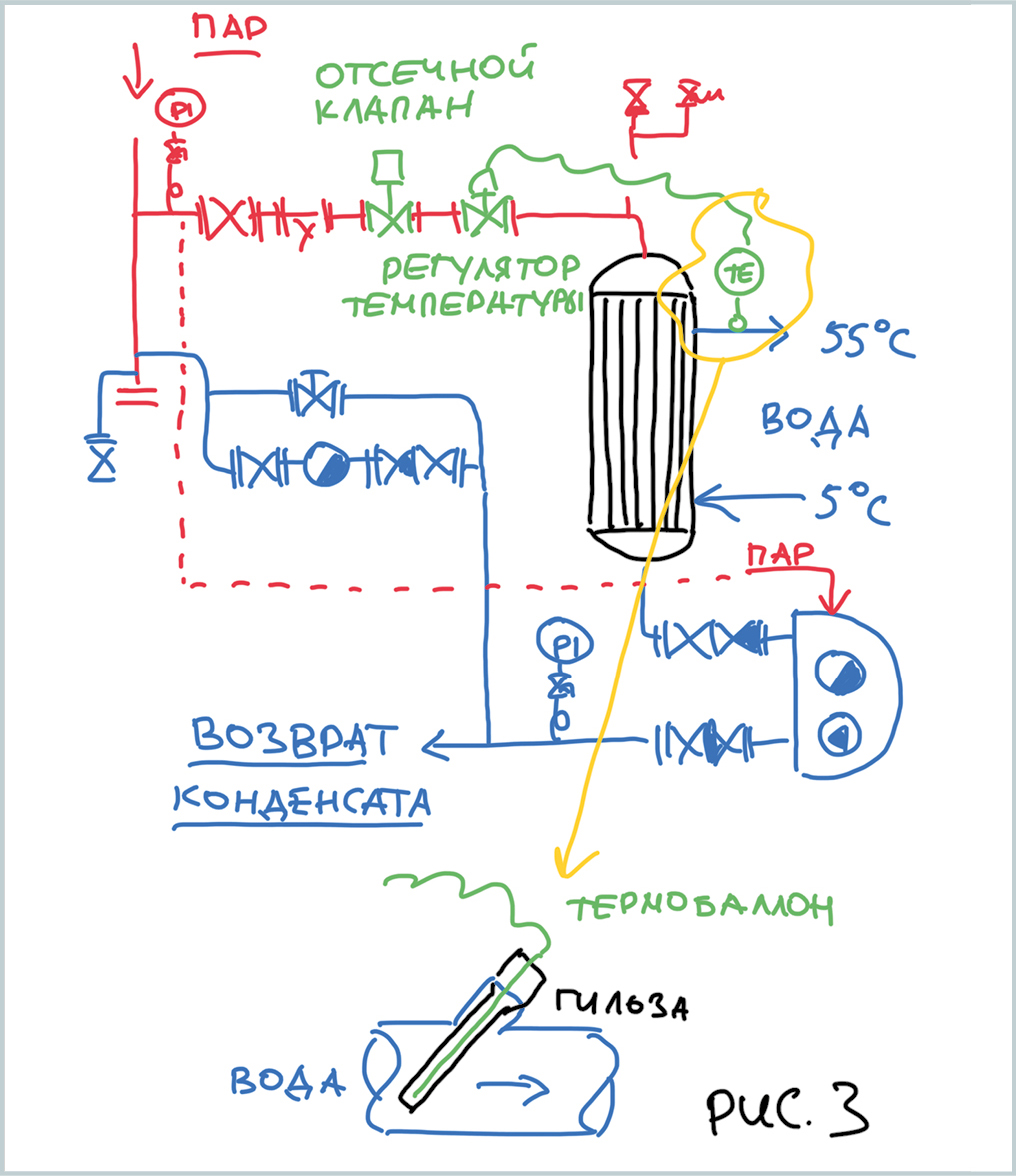 ПАР
PI
ОТСЕЧНОЙ
КЛАПАН
РЕГУЛЯТОР
ТЕМПЕРАТУРЫ
TE
55°C
ВОДА
5°C
ПАР
PI
ВОЗВРАТ
КОНДЕНСАТА
ТЕРМОБАЛЛОН
ГИЛЬЗА
ВОДА
РИС. 3